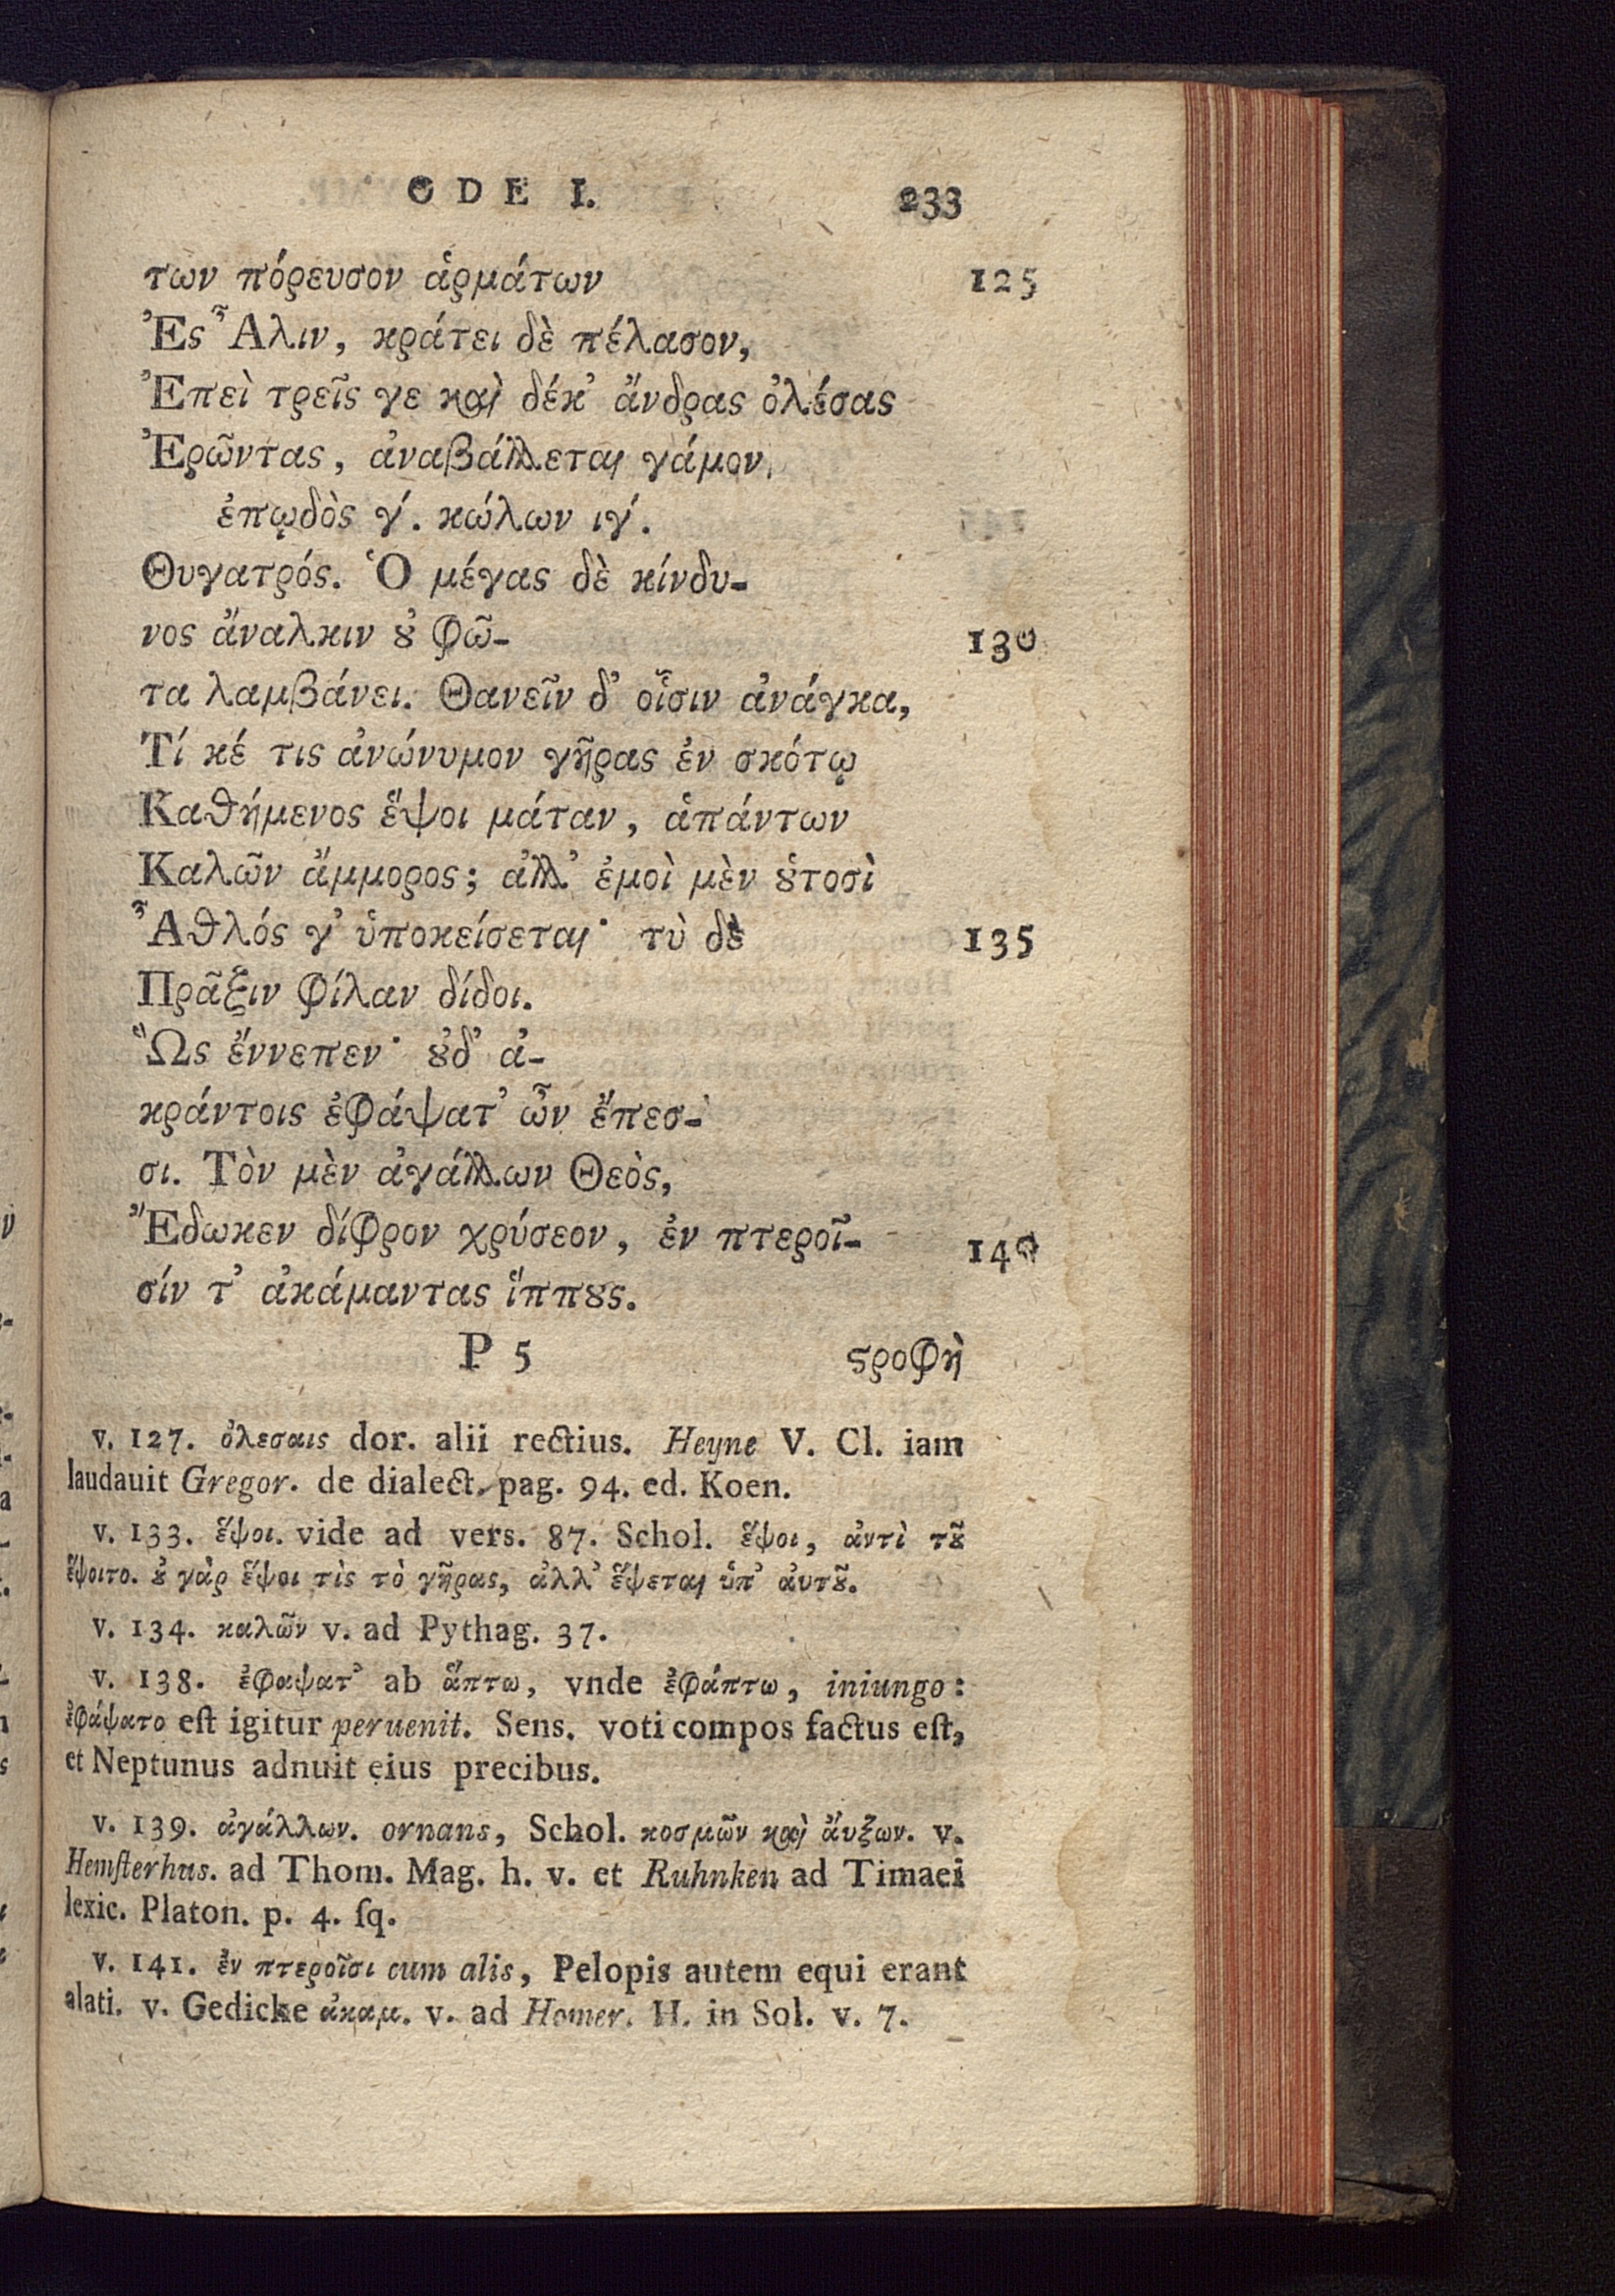 ODE I. 233
των πόρευσον ἁρμάτων 125
Ἐς Ἆλιν, κράτει δὲ πέλασον,
Ἐπεὶ τρεῖς γε καὶ δέκ' ἄνδρας ὀλέσας
Ἐρῶντας, ἀναβάλλεται γάμον
ἐπῳδὸς γ΄. κώλων ιγ΄.
Θυγατρός. Ὁ μέγας δὲ κίνδυ-
νος ἄναλκιν ȣ̓ φῶ- 130
τα λαμβάνει. Θανεῖν δ' οἷσιν ἀνάγκα,
Τί κέ τις ἀνώνυμον γῆρας ἐν σκότῳ
Καθήμενος ἕψοι μάταν, ἁπάντων
Καλῶν ἄμμορος; ἀλλ' ἐμοὶ μὲν ȣ̔τοσὶ
Ἆθλός γ' ὑποκείσεται· τὺ δὲ 135
Πρᾶξιν φίλαν δίδοι.
Ὣς ἔννεπεν· ȣ̓δ' ἀ-
κράντοις ἐφάψατ' ὦν ἔπεσ-
σι. Τὸν μὲν ἀγάλλων Θεὸς,
Ἔδωκεν δίφρον χρύσεον, ἐν πτεροῖ- 140
σίν τ' ἀκάμαντας ἵππȣς.
P 5 ϛροφὴ
v. 127. ὀλεσαις dor. alii rectius. Heyne V. Cl. iam
laudauit Gregor. de dialect. pag. 94. ed. Koen.
v. 133. ἕψοι. vide ad vers. 87. Schol. ἕψοι, ἀντὶ τȣ͂
ἕψοιτο. ȣ̓ γὰρ ἕψοι τὶς τὸ γῆρας, ἀλλ' ἕψεται ὑπ' ἀυτȣ͂.
v. 134. καλῶν v. ad Pythag. 37.
v. 138. ἐφαψατ' ab ἅπτω, vnde ἐφάπτω, iniungo:
ἐφάψατο eſt igitur peruenit. Sens. voti compos factus eſt,
et Neptunus adnuit eius precibus.
v. 139. ἀγάλλων. ornans, Schol. κοσμῶν καὶ ἄυξων. v.
Hemſterhus. ad Thom. Mag. h. v. et Ruhnken ad Timaei
lexic. Platon. p. 4. ſq.
v. 141. ἐν πτεροῖσι cum alis, Pelopis autem equi erant
alati. v. Gedicke ἀκαμ. v. ad Homer. H. in Sol. v. 7.